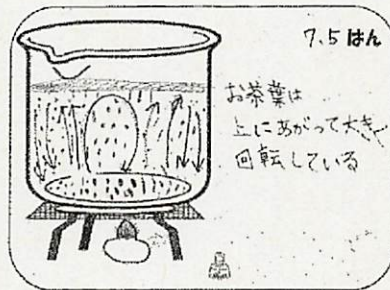 7.5 はん
お茶葉は
上にあがって大きく
回転している